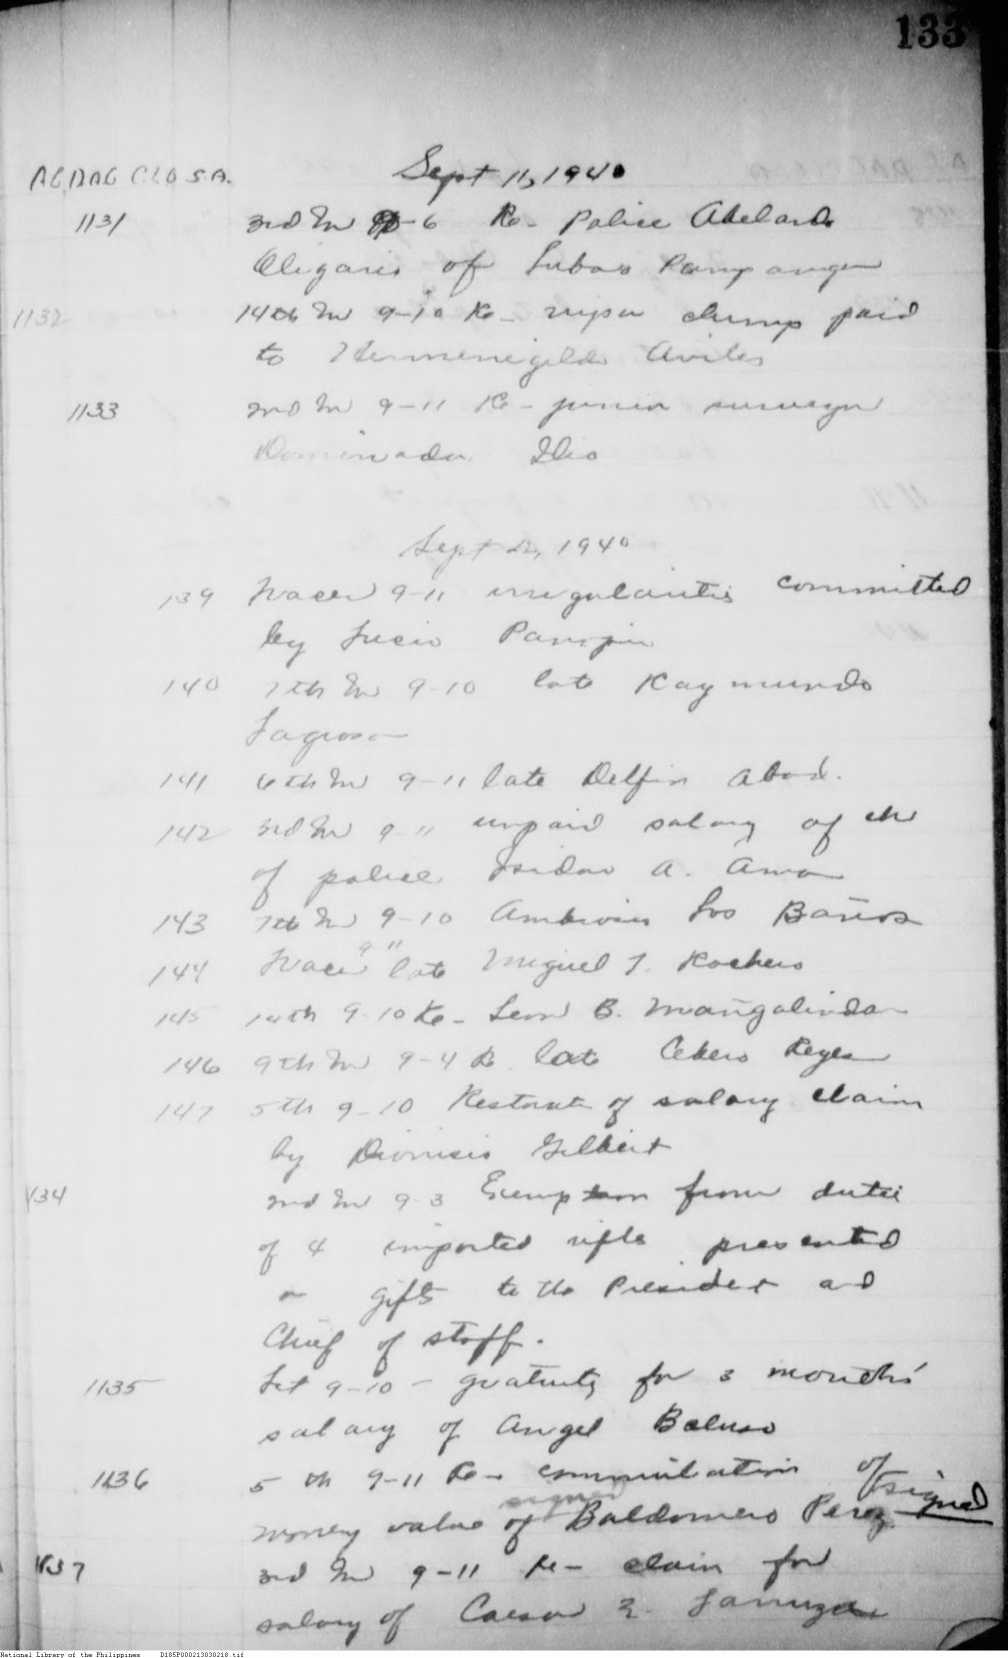 133
Sept 11, 1940
AG DAG CLO S.A.
1131 3rd In 9-6 Re- Police Abelardo
of Lubao Pampanga
1132 14th In 9-10 Re- nipa clump paid
to Hermenegildo Aviles
1133 2nd In 9-11 Re- junior surveyor
Ilio
Sept 12, 1940
139 9-11 irregularities committed
by Lucio
140 7th In 9-10 late Raymundo
Lagrosa
141 6th In 9-11 late Delfin Abad.
142 3rd In 9-11 unpaid salary of ch
of police Isidro A.
143 7th In 9-10 Los Baños
9 11
144 late Miguel T.
145 14th 9-10 Re- Leon B. Mangalindan
146 9th In 9-4 Re late Reyes
147 5th 9-10 of salary claim
by Dionisio Gilbert
1134 2nd In 9-3 Exemption from duties
of 4 imported rifles presented
as gifts to the President and
Chief of staff.
1135 1st 9-10 - gratuity for 3 months'
salary of Angel
1136 5th 9-11 Re- commutation of
signed
money value of Baldomero Perez signed
1137 3rd In 9-11 Re- claim for
salary of Caesar Z.
National Library of the Philippines D185P000213030218.tif